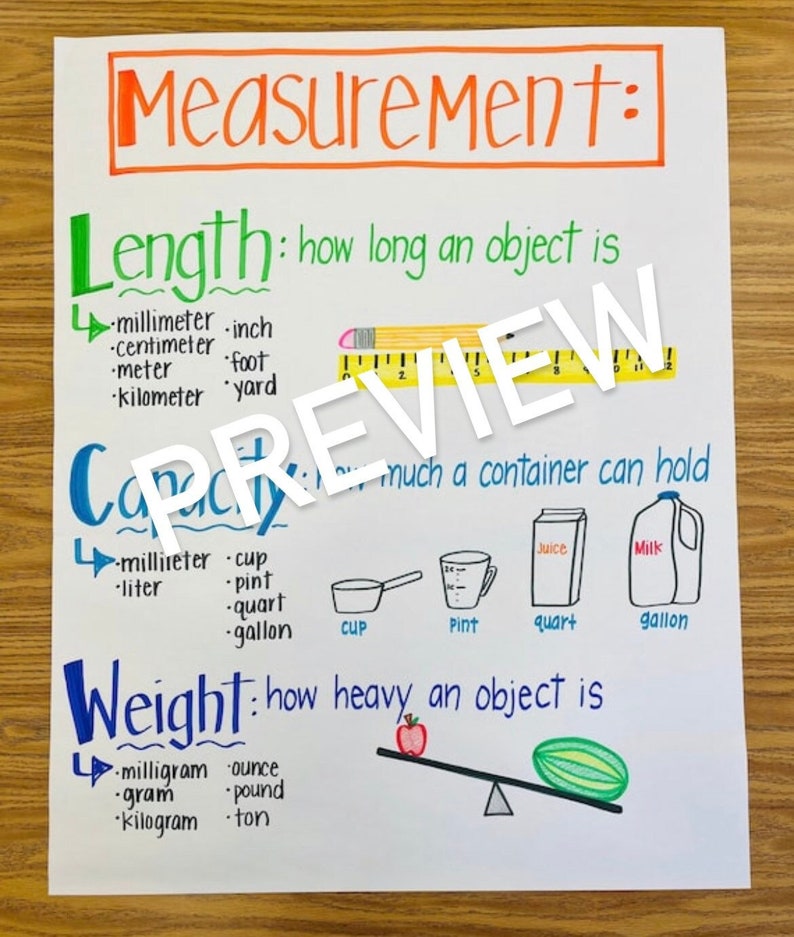 Measurement:
Length: how long an object is
·millimeter ·inch
·centimeter ·foot
·meter ·yard
·kilometer
0 2 5 8 9 10 11 12
PREVIEW
Capacity: how much a container can hold
·millileter ·cup
·liter ·pint
·quart
·gallon
Juice
Milk
2c
1c
cup pint quart gallon
Weight: how heavy an object is
·milligram ·ounce
·gram ·pound
·kilogram ·ton